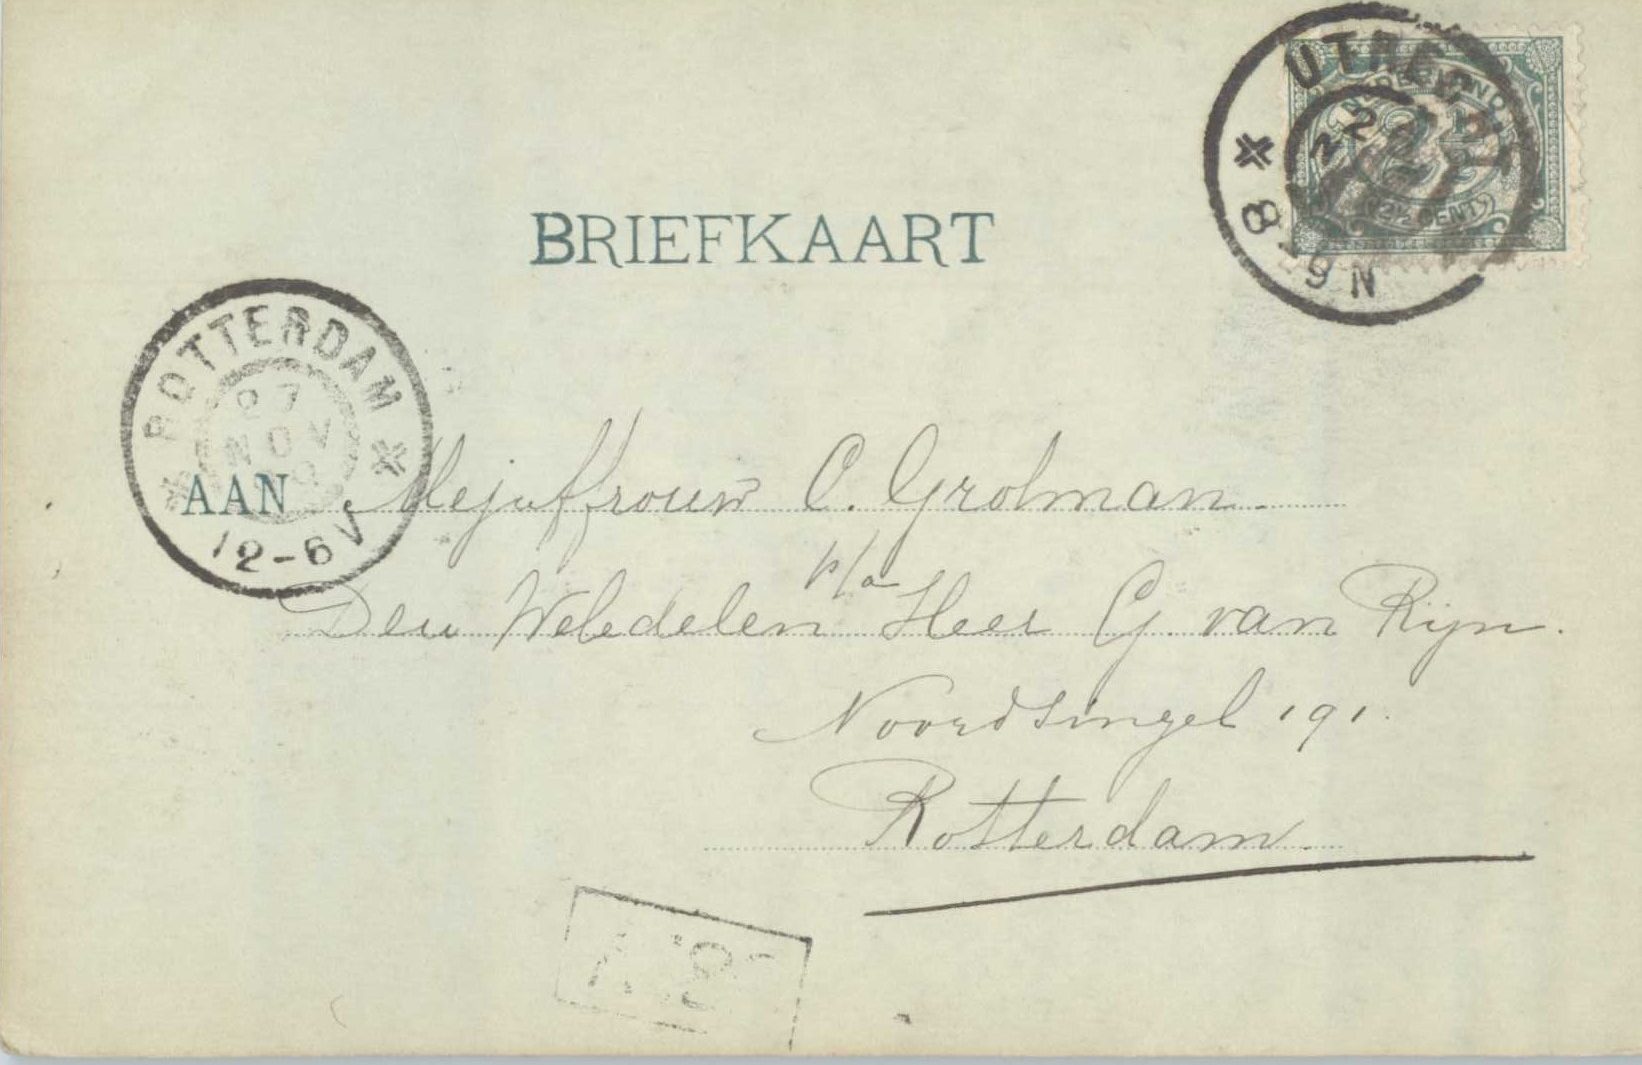 UTRECHT
8-9 N
NEDERLAND
2½ CENT
BRIEFKAART
ROTTERDAM
27
NOV
12-6 V
AAN Mejuffrouw C. Grolman.
p/a
Den Weledelen Heer G. van Rijn.
Noordsingel 191.
Rotterdam.